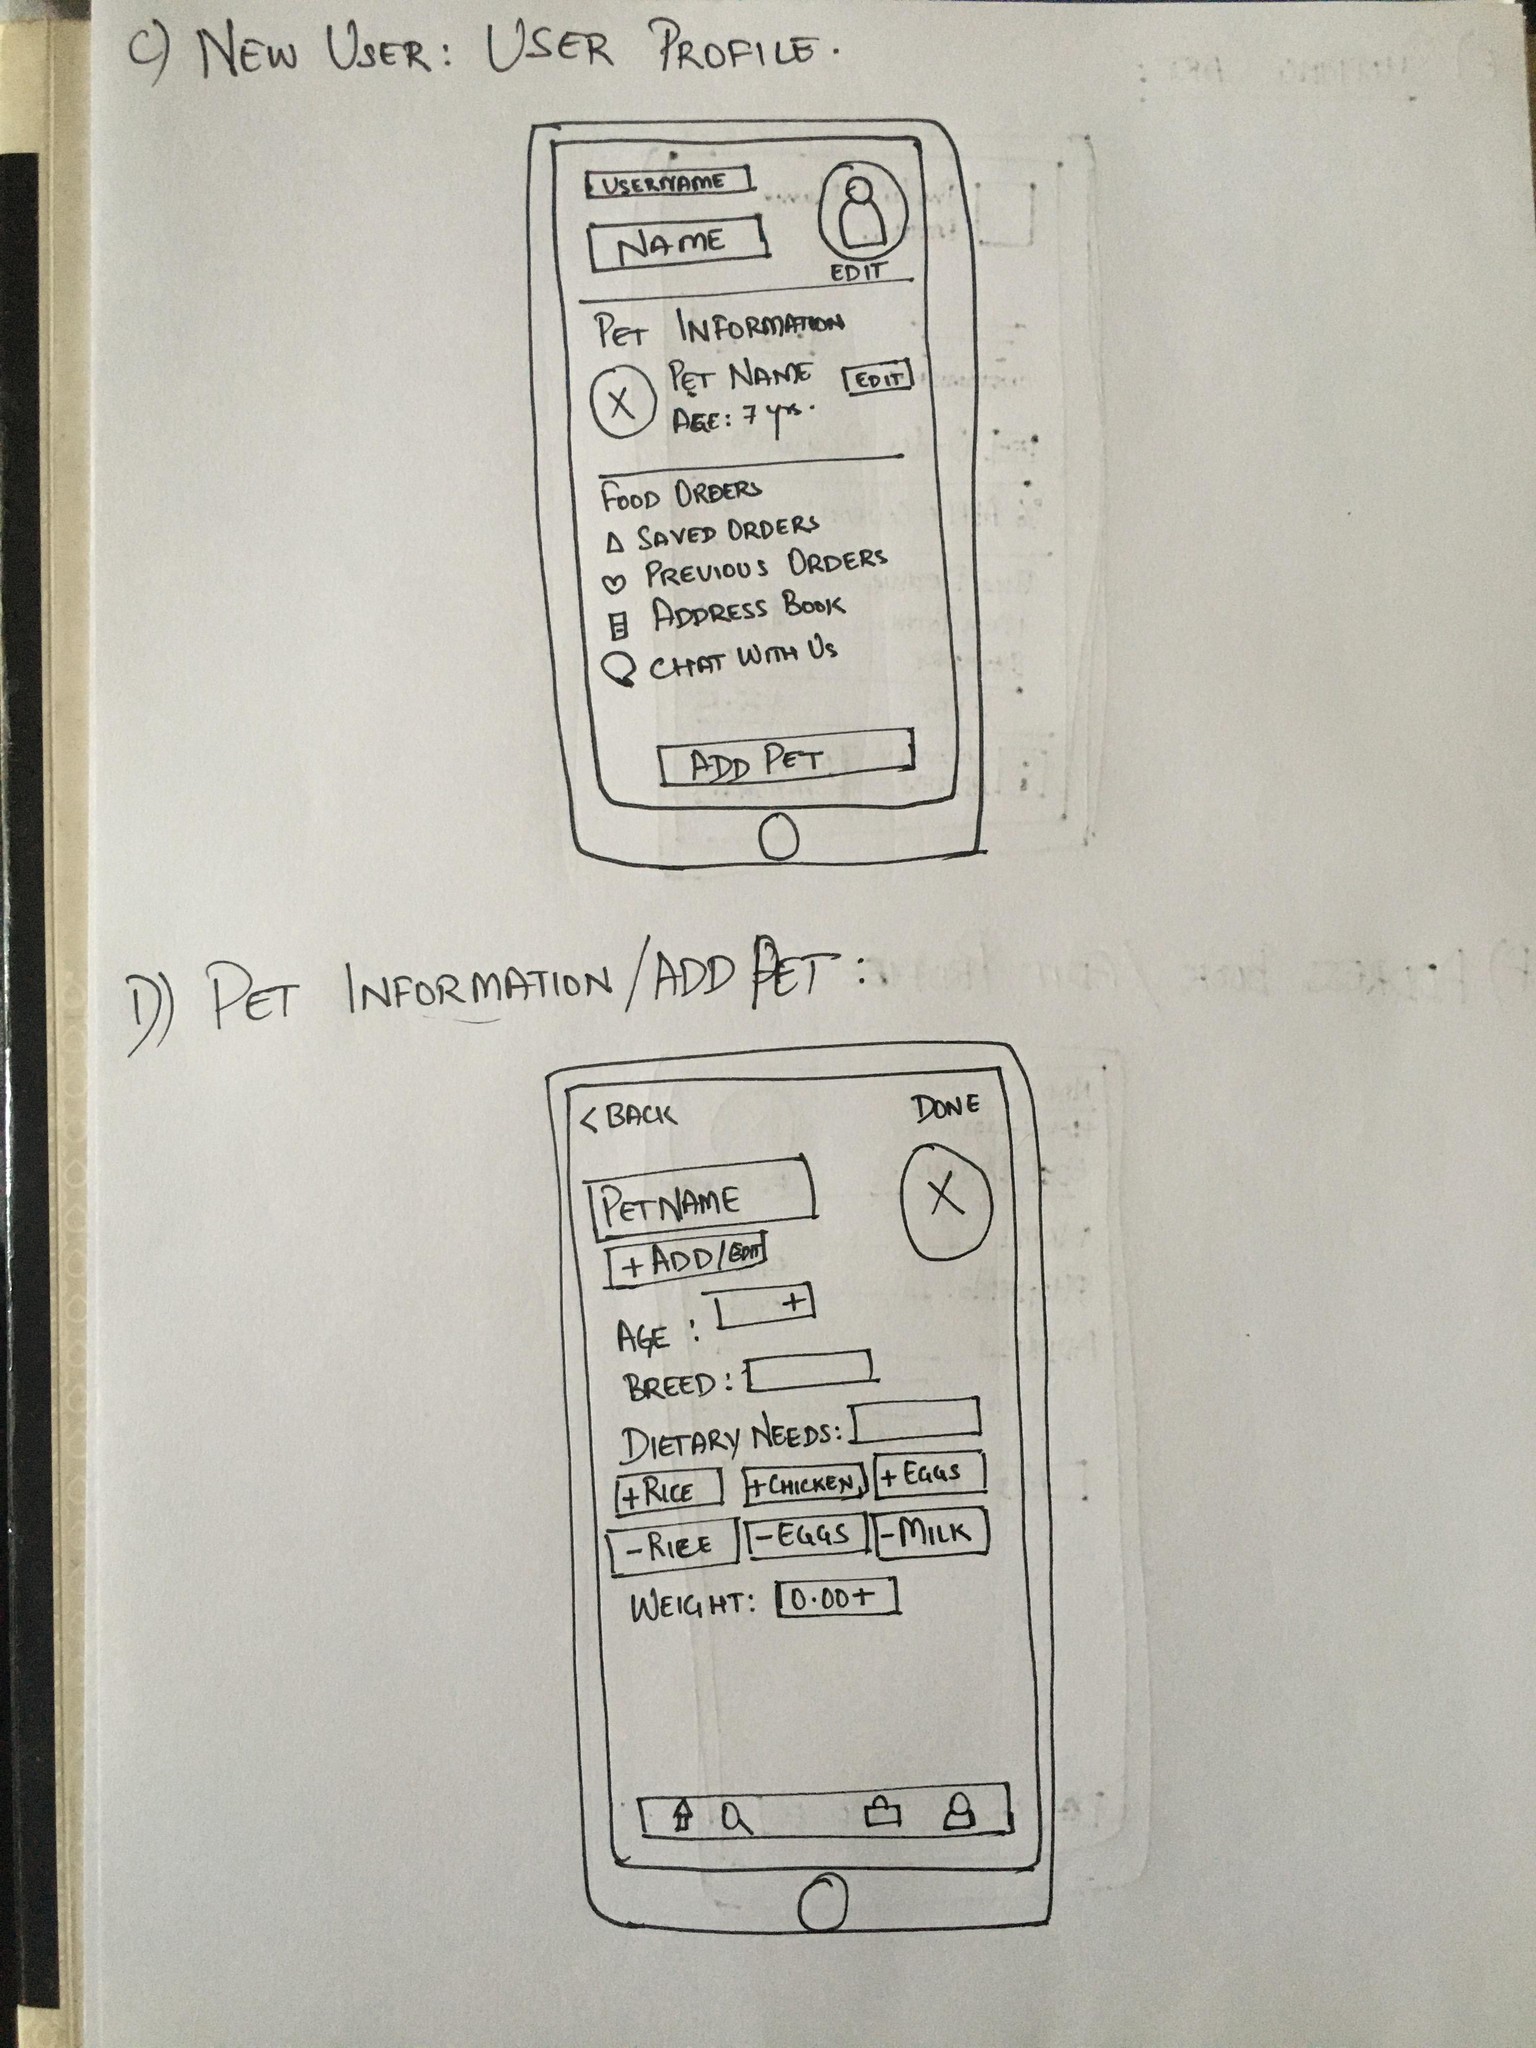 C) NEW USER: USER PROFILE.
USERNAME
NAME
EDIT
PET INFORMATION
X
PET NAME
EDIT
AGE: 7 yrs.
FOOD ORDERS
SAVED ORDERS
PREVIOUS ORDERS
ADDRESS BOOK
CHAT WITH US
ADD PET
D) PET INFORMATION/ADD PET:
< BACK
DONE
PET NAME
X
+ADD/EDIT
AGE : +
BREED:
DIETARY NEEDS:
+RICE +CHICKEN +EGGS
-RICE -EGGS -MILK
WEIGHT: 0.00+